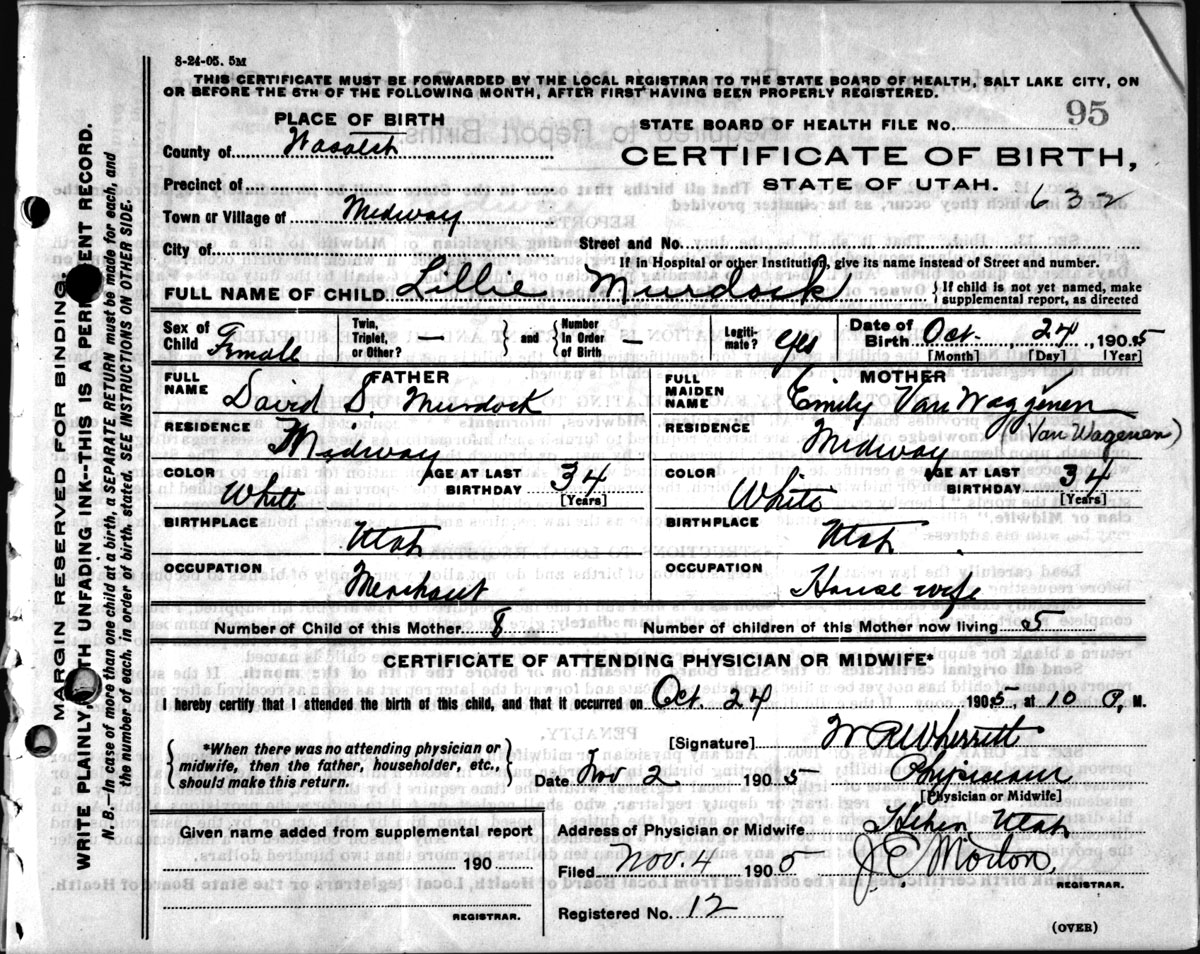 8-24-05. 5M
THIS CERTIFICATE MUST BE FORWARDED BY THE LOCAL REGISTRAR TO THE STATE BOARD OF HEALTH, SALT LAKE CITY, ON
OR BEFORE THE 5TH OF THE FOLLOWING MONTH, AFTER FIRST HAVING BEEN PROPERLY REGISTERED.
PLACE OF BIRTH
STATE BOARD OF HEALTH FILE NO. 95
County of Wasatch
CERTIFICATE OF BIRTH,
Precinct of
STATE OF UTAH.
632
Town or Village of Midway
City of
Street and No.
If in Hospital or other Institution, give its name instead of Street and number.
FULL NAME OF CHILD Lillie Murdock { If child is not yet named, make supplemental report, as directed
Sex of Child Female
Twin, Triplet, or Other? —
} and {
Number in Order of Birth —
Legitimate? yes
Date of Birth Oct. 24, 1905
[Month] [Day] [Year]
FATHER
FULL NAME David S. Murdock
MOTHER
FULL MAIDEN NAME Emily Van Waggenen
Van Wagenen)
RESIDENCE Midway
RESIDENCE Midway
COLOR White
AGE AT LAST BIRTHDAY 34
[Years]
COLOR White
AGE AT LAST BIRTHDAY 34
[Years]
BIRTHPLACE Utah
BIRTHPLACE Utah
OCCUPATION Merchant
OCCUPATION House wife
Number of Child of this Mother 8
Number of children of this Mother now living 5
CERTIFICATE OF ATTENDING PHYSICIAN OR MIDWIFE*
I hereby certify that I attended the birth of this child, and that it occurred on Oct. 24 1905, at 10 P. M.
{ *When there was no attending physician or midwife, then the father, householder, etc., should make this return. }
[Signature] W R Wherritt
Date Nov 2 1905
Physician
[Physician or Midwife]
Given name added from supplemental report
190
REGISTRAR.
Address of Physician or Midwife Heber, Utah
Filed Nov. 4 1905
J. E. Morton,
REGISTRAR.
Registered No. 12
(OVER)
MARGIN RESERVED FOR BINDING.
WRITE PLAINLY, WITH UNFADING INK--THIS IS A PERMANENT RECORD.
N. B.—In case of more than one child at a birth, a SEPARATE RETURN must be made for each, and
the number of each, in order of birth stated. SEE INSTRUCTIONS ON OTHER SIDE.